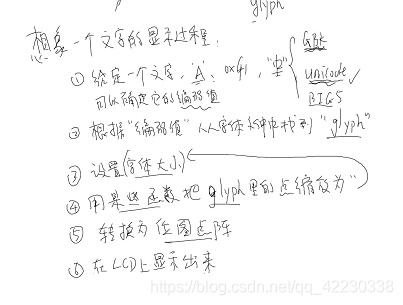 glyph
想象一个文字的显示过程:
① 给定一个文字, 'A', 0x41, "中" { GBK
可以确定它的编码值 unicode ✓
BIG5
② 根据"编码值"从字体文件中找到"glyph"
③ 设置(字体大小)
④ 用某些函数把glyph里的点缩放为"
⑤ 转换为位图点阵
⑥ 在LCD上显示出来
https://blog.csdn.net/qq_42230338